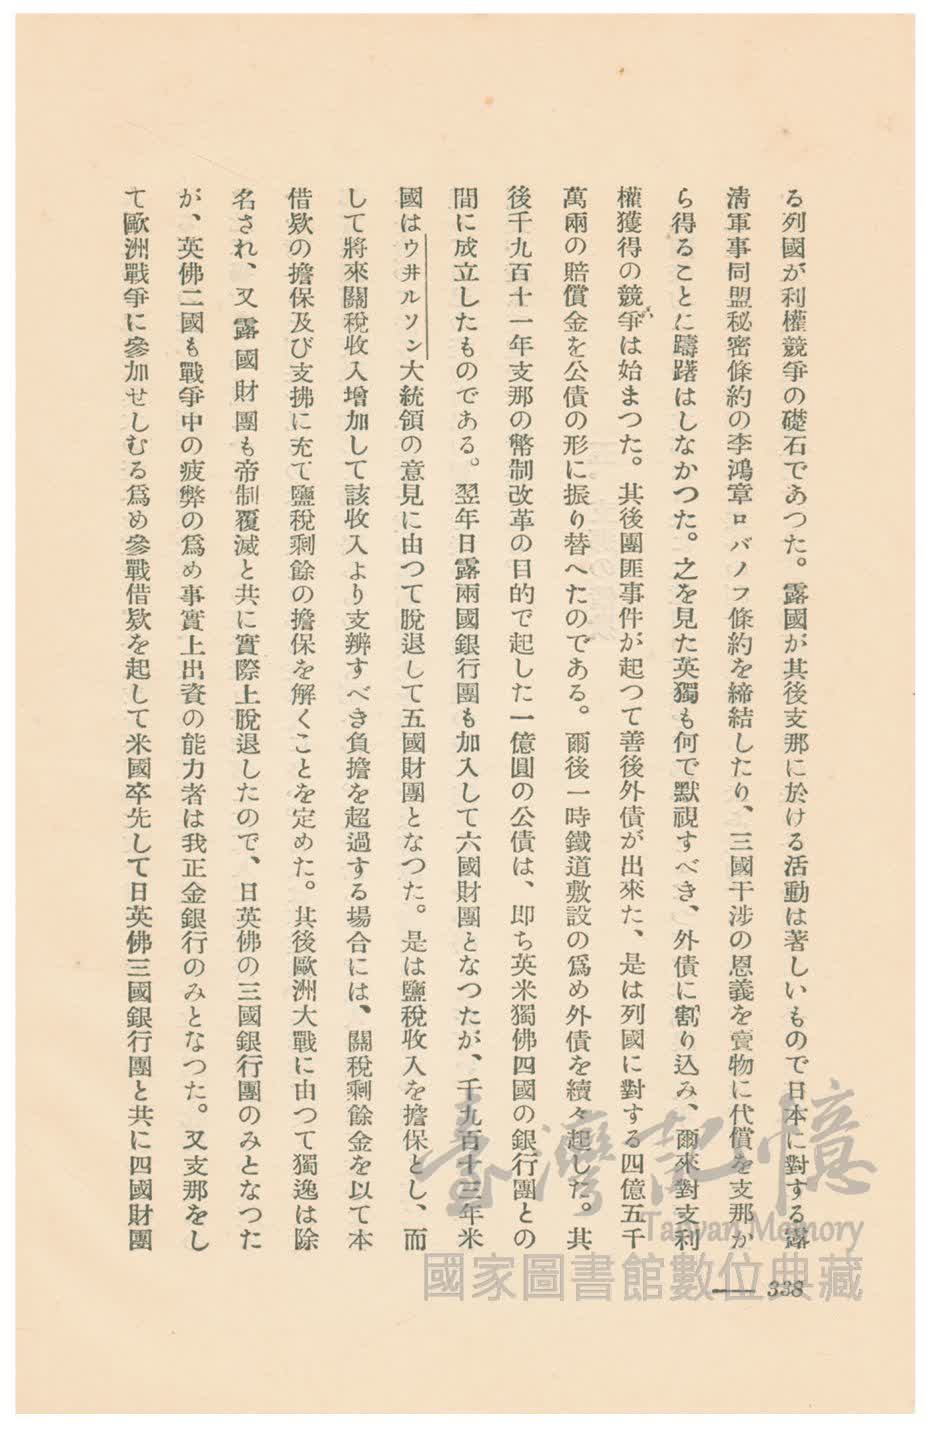 る列國が利權競爭の礎石であつた。露國が其後支那に於ける活動は著しいもので日本に對する露
淸軍事同盟秘密條約の李鴻章ロバノフ條約を締結したり、三國干涉の恩義を賣物に代償を支那か
ら得ることに躊躇はしなかつた。之を見た英獨も何で默視すべき、外債に割り込み、爾來對支利
權獲得の競爭は始まつた。其後團匪事件が起つて善後外債が出來た、是は列國に對する四億五千
萬兩の賠償金を公債の形に振り替へたのである。爾後一時鐵道敷設の爲め外債を續々起した。其
後千九百十一年支那の幣制改革の目的で起した一億圓の公債は、卽ち英米獨佛四國の銀行團との
間に成立したものである。翌年日露兩國銀行團も加入して六國財團となつたが、千九百十三年米
國はウヰルソン大統領の意見に由つて脫退して五國財團となつた。是は鹽稅收入を擔保とし、而
して將來關稅收入增加して該收入より支辨すべき負擔を超過する場合には、關稅剩餘金を以て本
借欵の擔保及び支拂に充て鹽稅剩餘の擔保を解くことを定めた。其後歐洲大戰に由つて獨逸は除
名され、又露國財團も帝制覆滅と共に實際上脫退したので、日英佛の三國銀行團のみとなつた
が、英佛二國も戰爭中の疲弊の爲め事實上出資の能力者は我正金銀行のみとなつた。又支那をし
て歐洲戰爭に參加せしむる爲め參戰借欵を起して米國卒先して日英佛三國銀行團と共に四國財團
338
臺灣記憶
Taiwan Memory
國家圖書館數位典藏